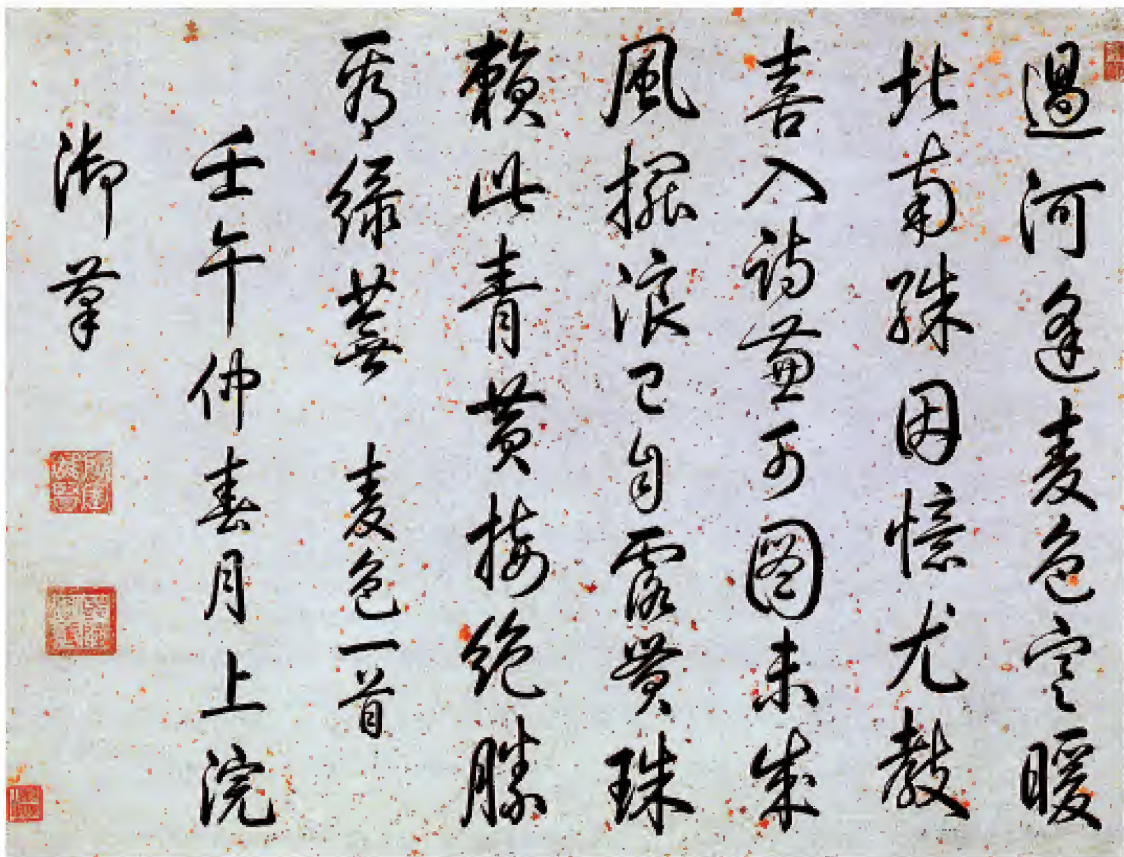 過河逢麥色寒暖
北南殊因憶尤教
喜入詩兼可圖未成
風擺浪已自露貫珠
賴此青黃接絕勝
看綠蕪 麥色一首
壬午仲春月上浣
御筆